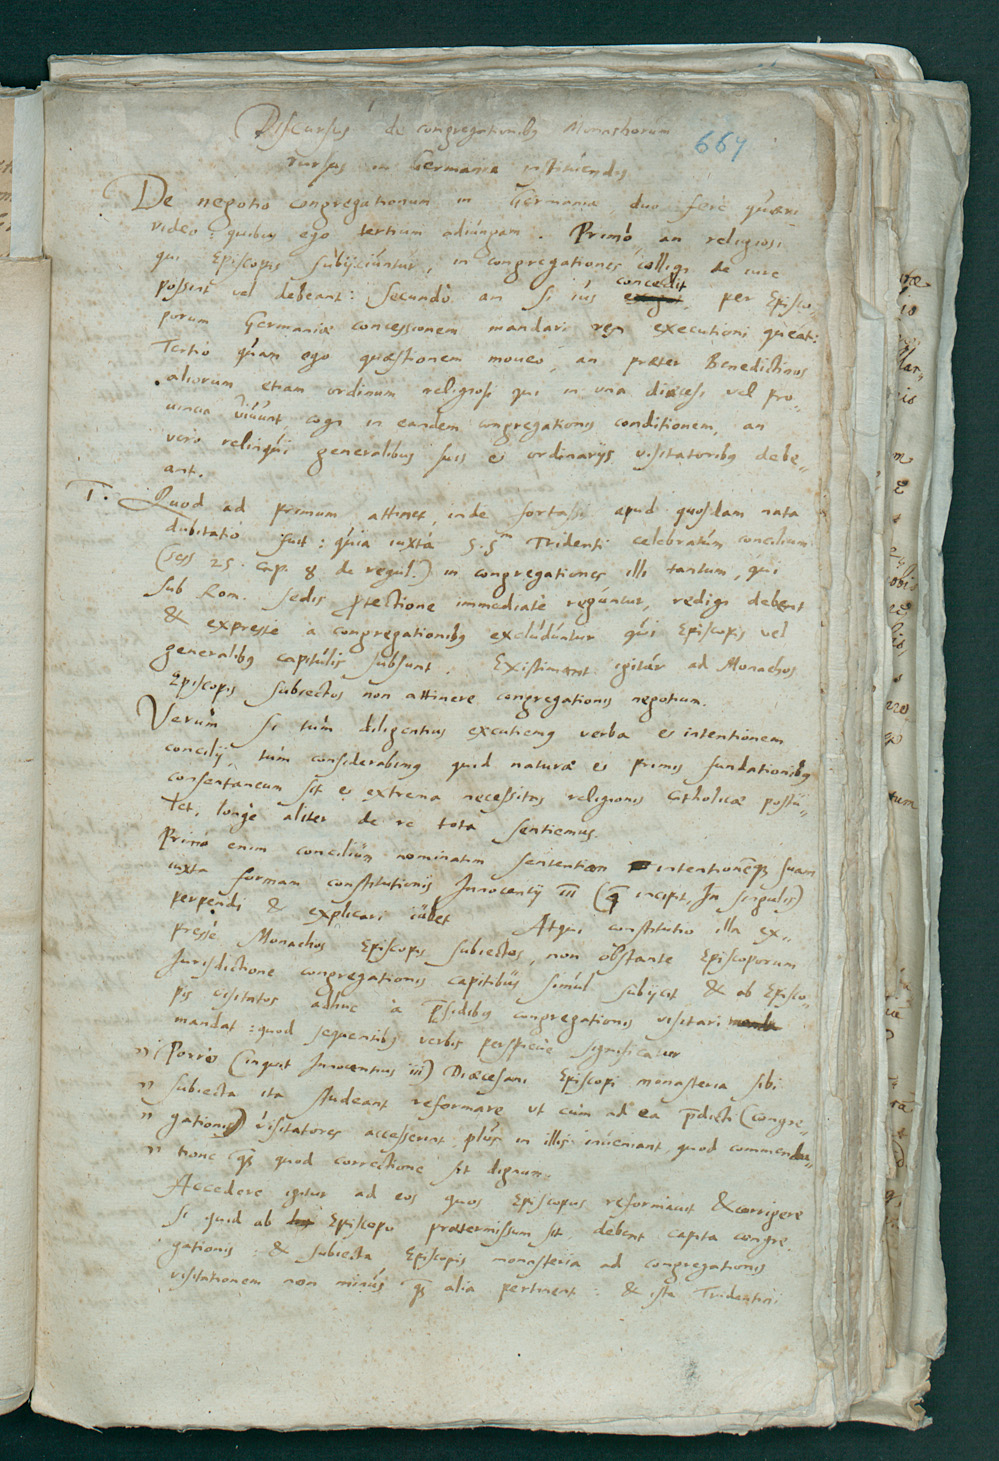 Discursus de congregationibq Monachorum
664
rursus in Germania instituendis
De negotio congregationum in Germania, duo fere quæri
video: quibus ego tertium adiungam. Primò, an religiosi
qui Episcopis subijciuntur, in congregationes colligi de iure
concedit
possint vel debeant: Secundò an si ius per Episco„
porum Germaniæ concessionem mandari rei executioni queat:
Tertiò quam ego quæstionem moueo, an præter Benedictinos
aliorum etiam ordinum religiosi qui in una diæcesi vel pro„
uincia viuunt, cogi in eandem congregationis conditionem, an
verò relinqui generalibus suis et ordinarijs visitatoribq debe„
ant.
I. Quod ad primum attinet, inde fortassis apud quosdam nata
dubitatio fuit: quia iuxta S.S.m Tridenti celebratum concilium
(sess 25. Cap. 8 de regul.) in congregationes illi tantum, qui
sub Rom. sedis protectione immediatè reguntur, redigi debent
& expresse à congregationibq excluduntur qui Episcopis vel
generalibq capitulis subsunt. Existimant igitur ad Monachos
Episcopis subiectos non attinere congregationis negotium.
Verùm si tùm diligentius excutiemq verba et intentionem
concilij, tùm considerabimq quid naturæ et primis fundationibq
consentaneum sit et extrema necessitas religionis Catholicæ postu„
let, longè aliter de re tota sentiemus.
Primò enim concilium nominatim sententiam intentionēqꝫ suam
iuxta formam constitutionis Innocentij III (q̄ incipit, In singulis)
perpendi & explicari iubet Atqui constitutio illa ex„
pressè Monachos Episcopis subiectos, non obstante Episcoporum
Jurisdictione congregationis capitibus simul subijcit & ab Episco„
pis visitatos adhuc à p̄sidibq congregationis visitari
mandat: quod sequentibq verbis perspicuè significatur
„ Porrò (inquit Innocentius iii) Diæcesani Episcopi monasteria sibi
„ subiecta ita studeant reformare ut cùm ad ea p̄dicti (congre„
„ gationis) visitatores accesserint plus in illis inueniant quod commenda„
„ tione qꝫ quod correctione sit dignum.
Accedere igitur ad eos quos Episcopus reformauit & corrigere
si quid ab Episcopo prætermissum sit, debent capita congre„
gationis: & subiecta Episcopis monasteria ad congregationis
visitationem non minùs qꝫ alia pertinent: & ista Tridentini